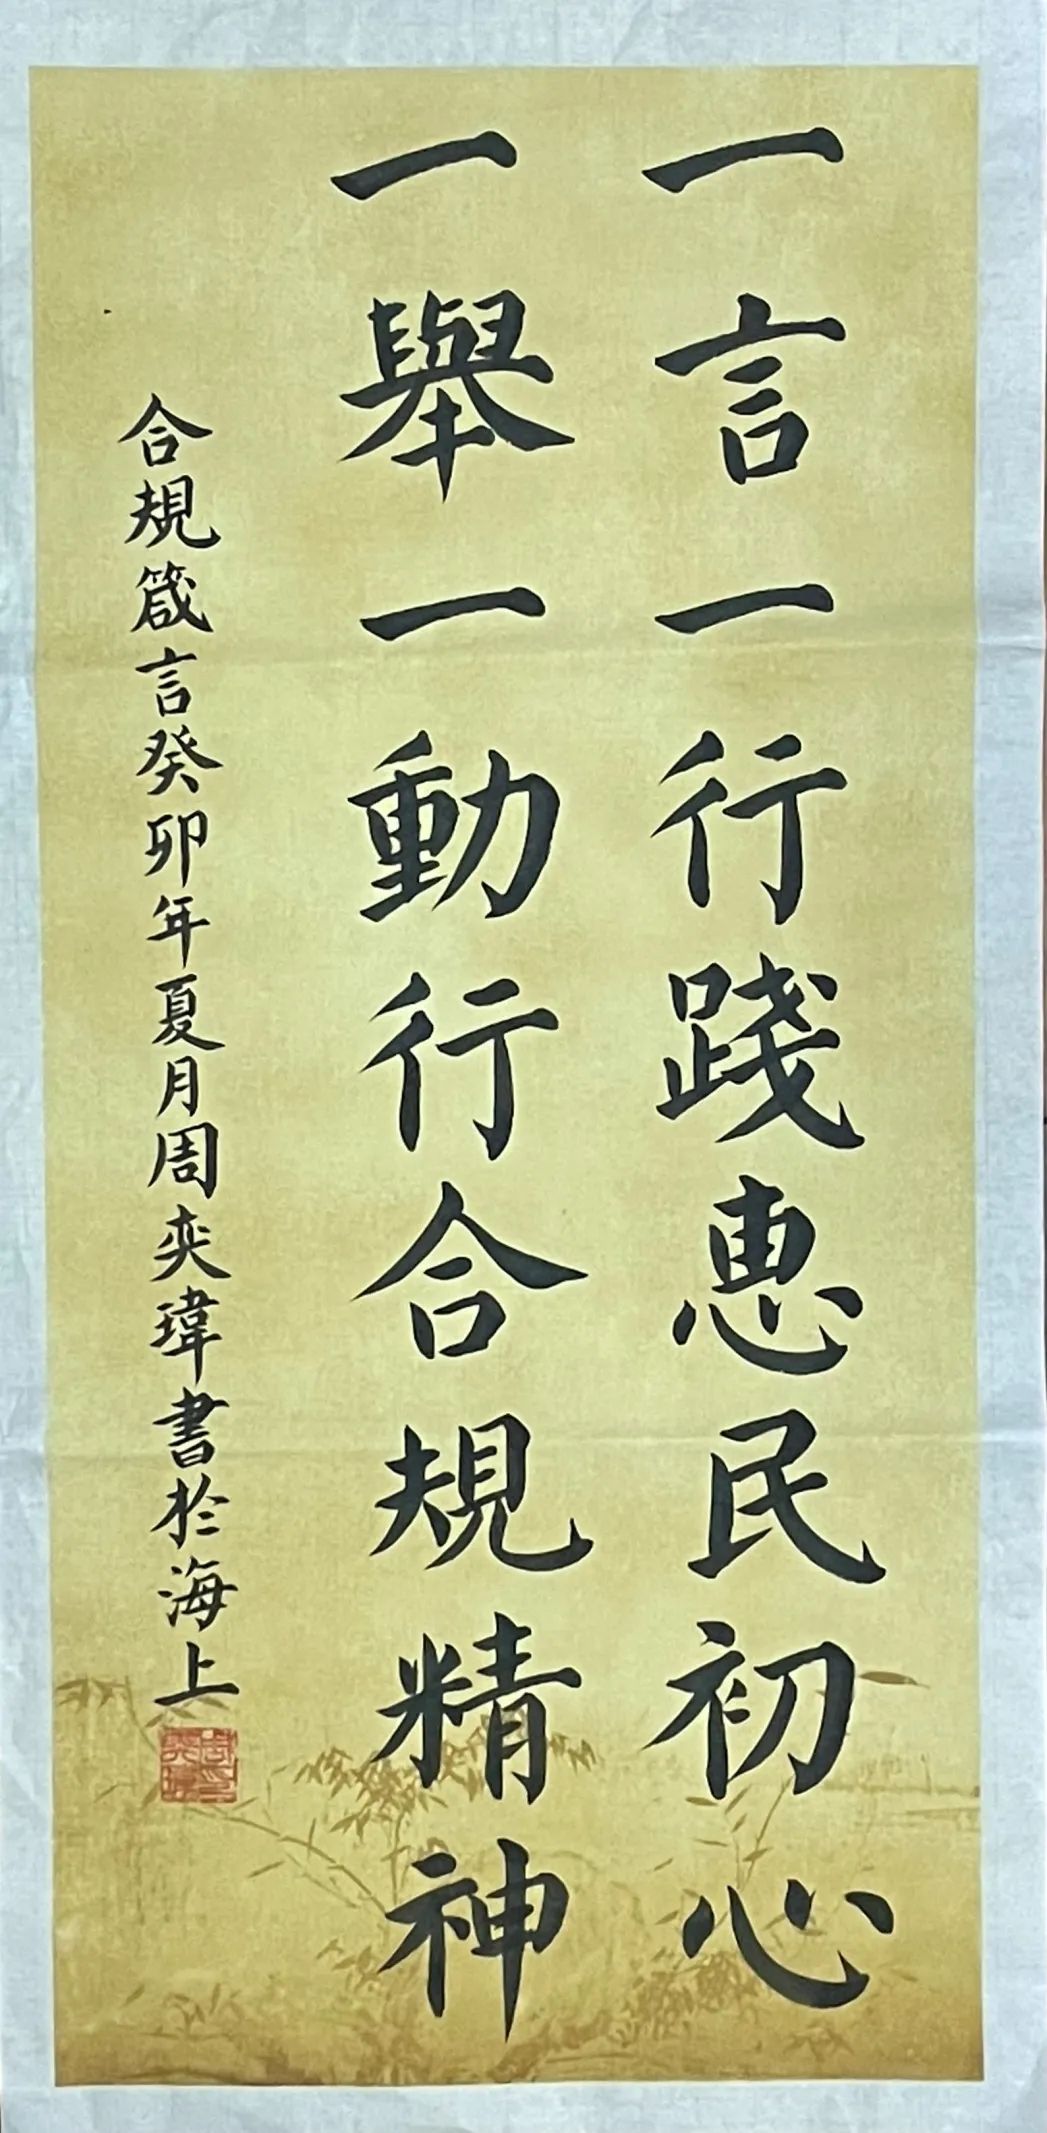 一言一行踐惠民初心
一舉一動行合規精神
合規箴言癸卯年夏月周奕瑋書於海上